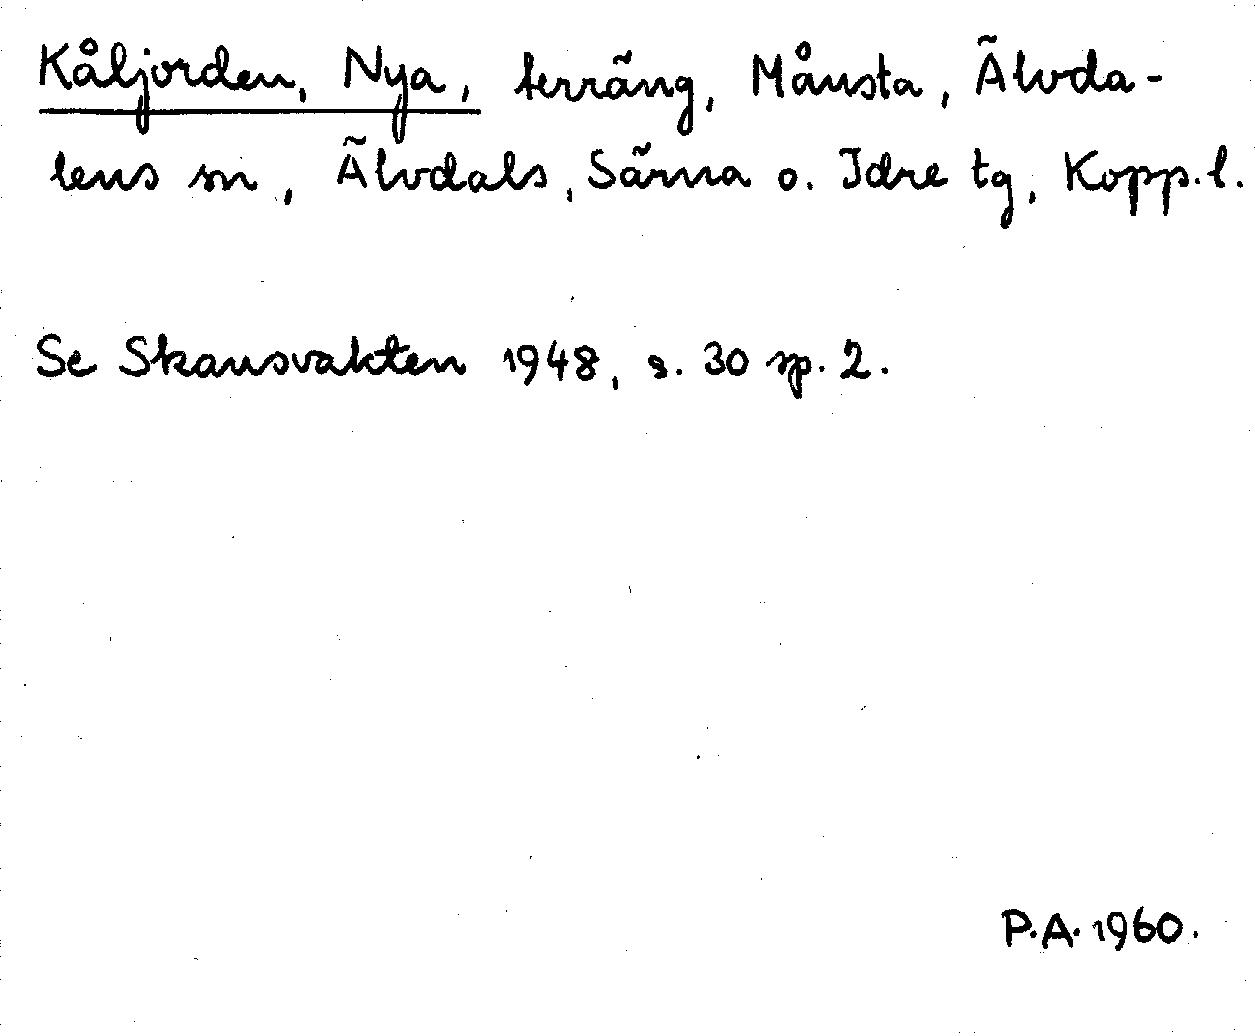 Kåljorden, Nya, terräng, Månsta, Älvda-
lens sn, Älvdals, Särna o. Idre tg, Kopp.l.
Se Skansvakten 1948, s. 30 sp. 2.
P.A. 1960.